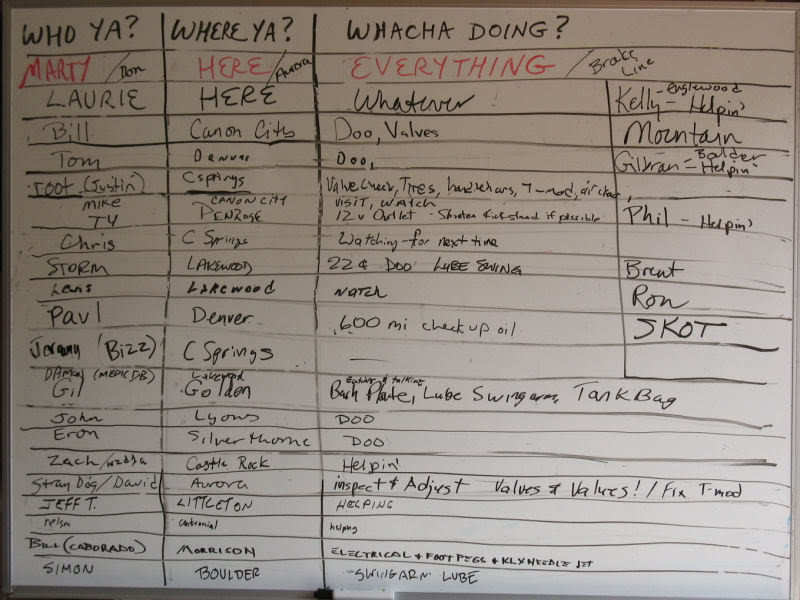 WHO YA? WHERE YA? WHACHA DOING?
MARTY / Don HERE / Aurora EVERYTHING / Brake Line
LAURIE HERE Whatever Kelly - Englewood Helpin'
Bill Canon City Doo, Valves Mountain
Tom Denver Doo, Gilbran - Bolder Helpin'
root (Justin) C springs Valve check, Tires, handlebars, T-mod,
mike CANON CITY VISIT, WATCH
TY PENROSE 12v Outlet - Shorten kickstand if possible Phil - Helpin'
Chris C Springs Watching - for next time
STORM LAKEWOOD 22¢ DOO LUBE SWING Brent
Lewis LAKEWOOD WATCH Ron
Paul Denver 600 mi check up oil SKOT
Jeremy (Bizz) C Springs —
DAMON (MEDIC DB) Lakewood Eating & talking
Gil Golden Bash Plate, Lube Swingarm, Tank Bag
John Lyons DOO
Eron Silverthorne DOO
Zach Castle Rock Helpin'
Stray Dog / David Aurora inspect & Adjust Valves & Values! / Fix T-mod
JEFF T. LITTLETON HELPING
nelson centennial helping
BILL (CABORADO) MORRISON ELECTRICAL & FOOT PEGS & KLX NEEDLE JET
SIMON BOULDER SWINGARM LUBE